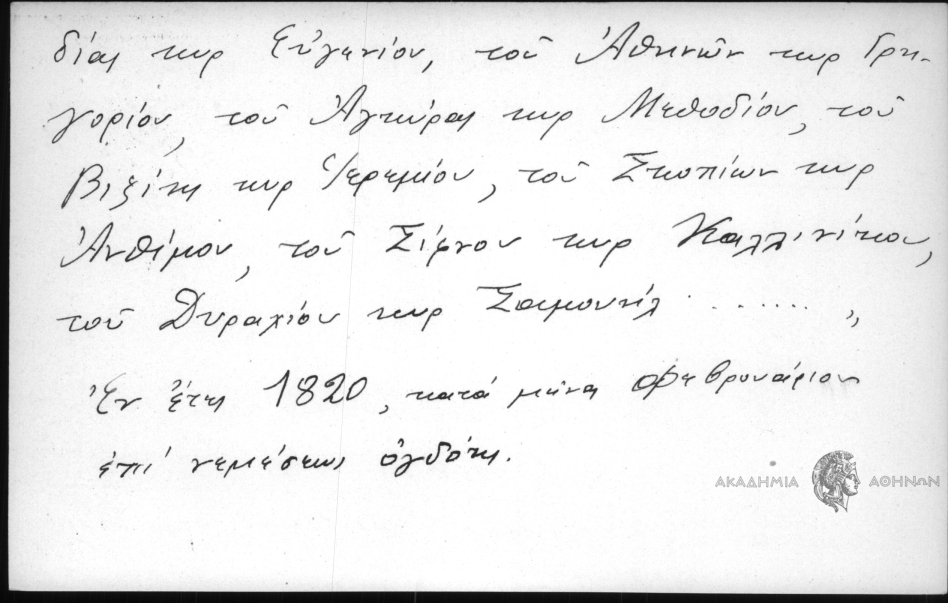 δίας κυρ Εὐγενίου, τοῦ Ἀθηνῶν κυρ Γρη-
γορίου, τοῦ Ἀγκύρας κυρ Μεθοδίου, τοῦ
Βιζύης κυρ Ἱερεμίου, τοῦ Σκοπίων κυρ
Ἀνθίμου, τοῦ Σίφνου κυρ Καλλινίκου,
τοῦ Δυραχίου κυρ Σαμουήλ ........ „
Ἐν ἔτει 1820, κατά μῆνα Φεβρουάριον
ἐπί νεμέσεως ὀγδόης.
ΑΚΑΔΗΜΙΑ ΑΘΗΝΩΝ